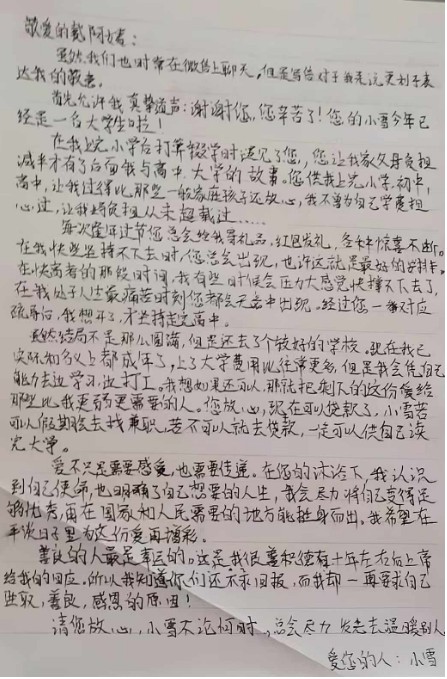 敬爱的戴阿姨：
虽然我们也时常在微信上聊天，但是写信对于我来说更利于表
达我的敬意。
首先允许我真挚道声：谢谢您，您辛苦了！您的小雪今年已
经是一名大学生啦！
在我上完小学后打算辍学时遇见了您，您让我家父母负担
减半才有了后面我与高中、大学的故事。您供我上完小学，初中，
高中，让我过得比那些一般家庭孩子还放心，我不曾为自己学费担
心过，让我
每次逢年过节您总会给我寄礼品，红包发礼，各种惊喜不断。
在我快坚持不下去时，您总会出现，也许这就是最好的
在快高考的那段时间，我有些时候会压力大感觉快撑不下去了，
在我处于人生最痛苦时刻您都会无言中出现。经过您一番对应
疏导后，我想开了，才坚持走完高中。
虽然结局不是那么圆满，但是还去了个较好的学校。现在我已
实际和名义上都成年了，上了大学费用比往常更多，但是我会凭自己
能力去边学习，边打工。我想如果还可以，那就把剩下的这份爱给
那些比我更弱更需要的人。您放心，现在可以贷款了，小雪若
可以假期除去找兼职，若不可以就去贷款，一定可以供自己读
完大学。
爱不只是需要感受，也需要传递。在您的沐浴下，我认识
到自己使命，也明确了自己想要的人生，我会尽力将自己变得足
够优秀，再在国家和人民需要的地方能挺身而出，我希望在
平淡日子里为这份爱再增彩。
善良的人最是幸运的。这是我很善积德有十年左右后上帝
给我的回应。所以我知道你们还不求回报，而我却一再要求自己
进取，善良，感恩的原因！
请您放心，小雪不论何时，总会尽力发光去温暖别人
爱您的人：小雪